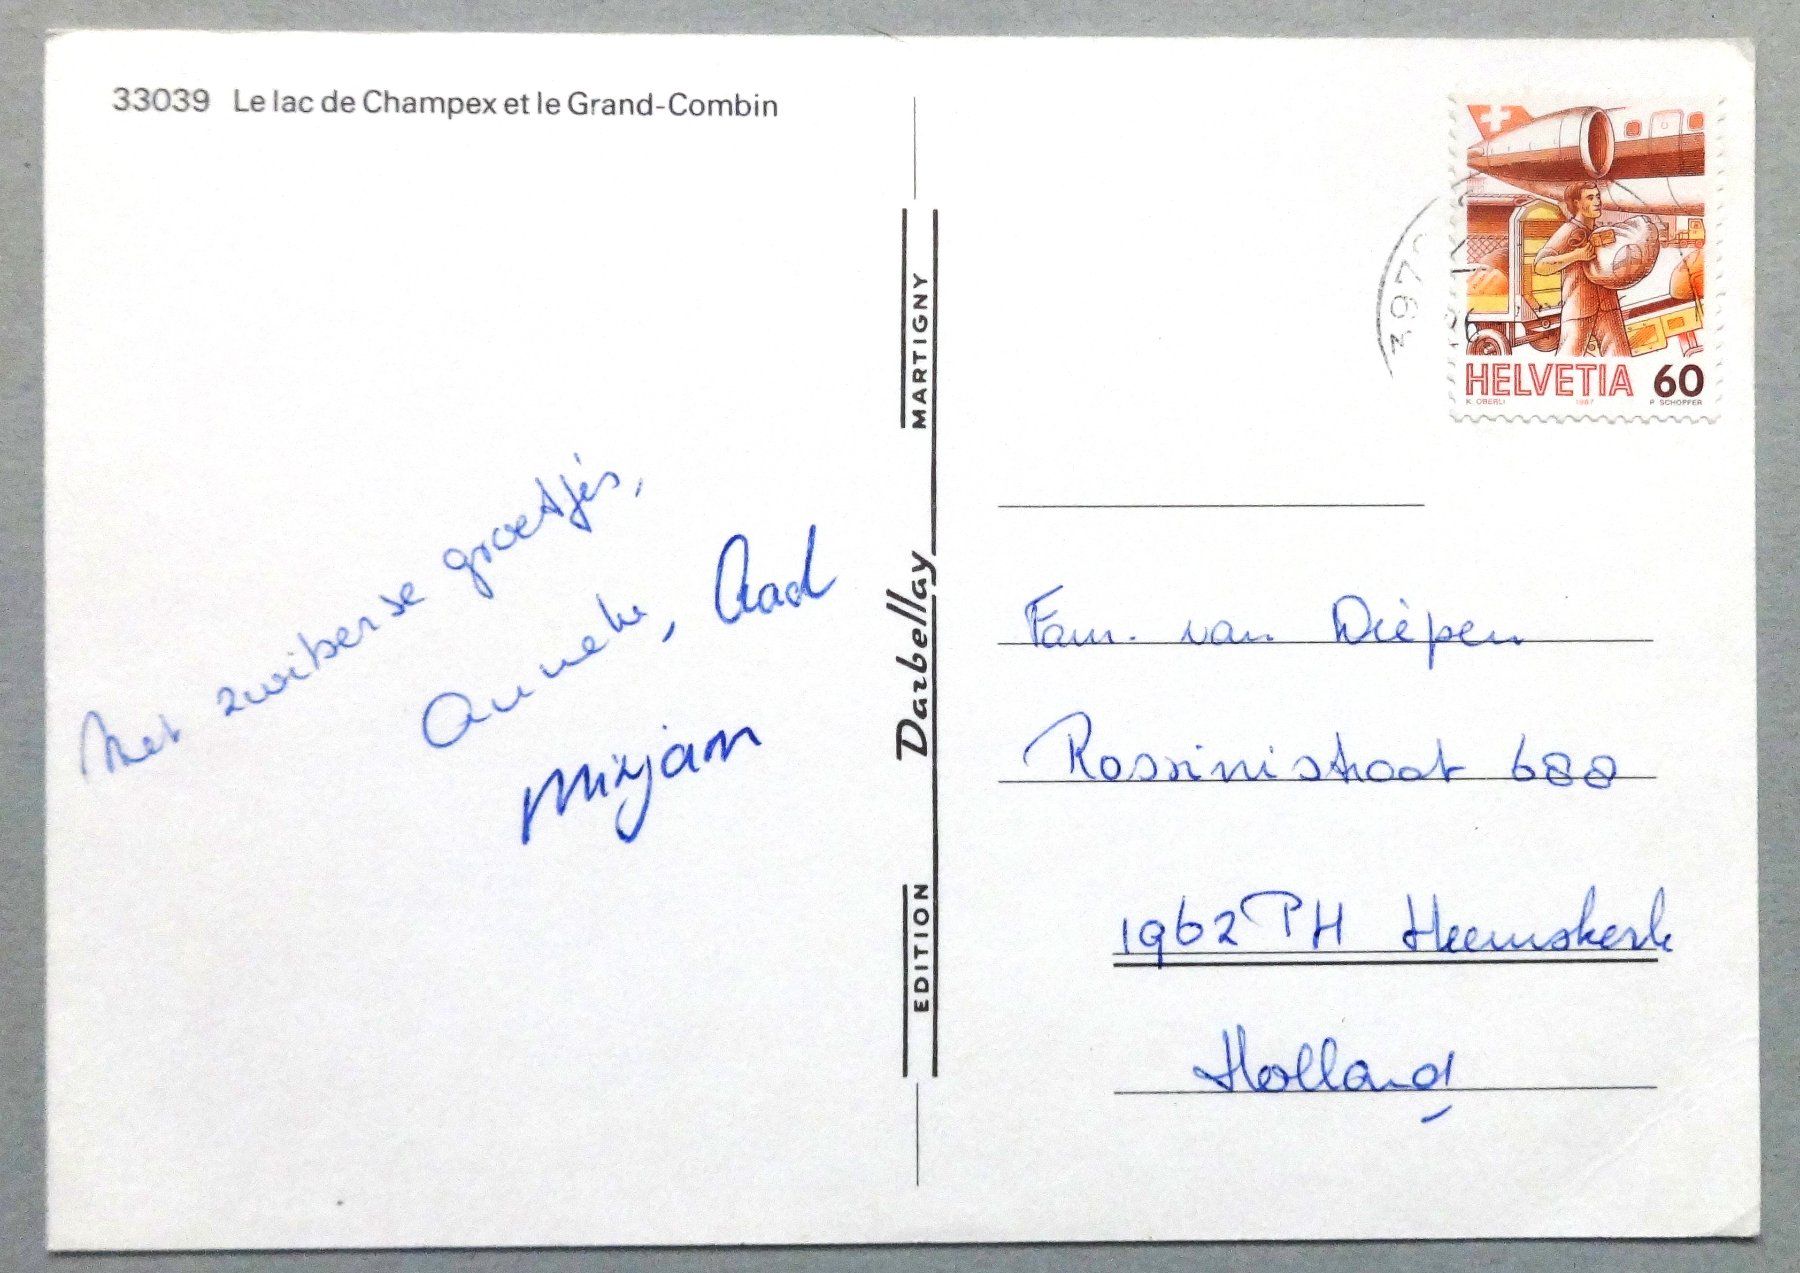 33039 Le lac de Champex et le Grand-Combin
Met zwitserse groetjes,
Anneke, Aad
Mirjam
MARTIGNY
Darbellay
EDITION
HELVETIA 60
K. OBERLI 1987 P. SCHOPFER
Fam. van Diepen
Rossinistraat 688
1962 PH Heemskerk
Holland